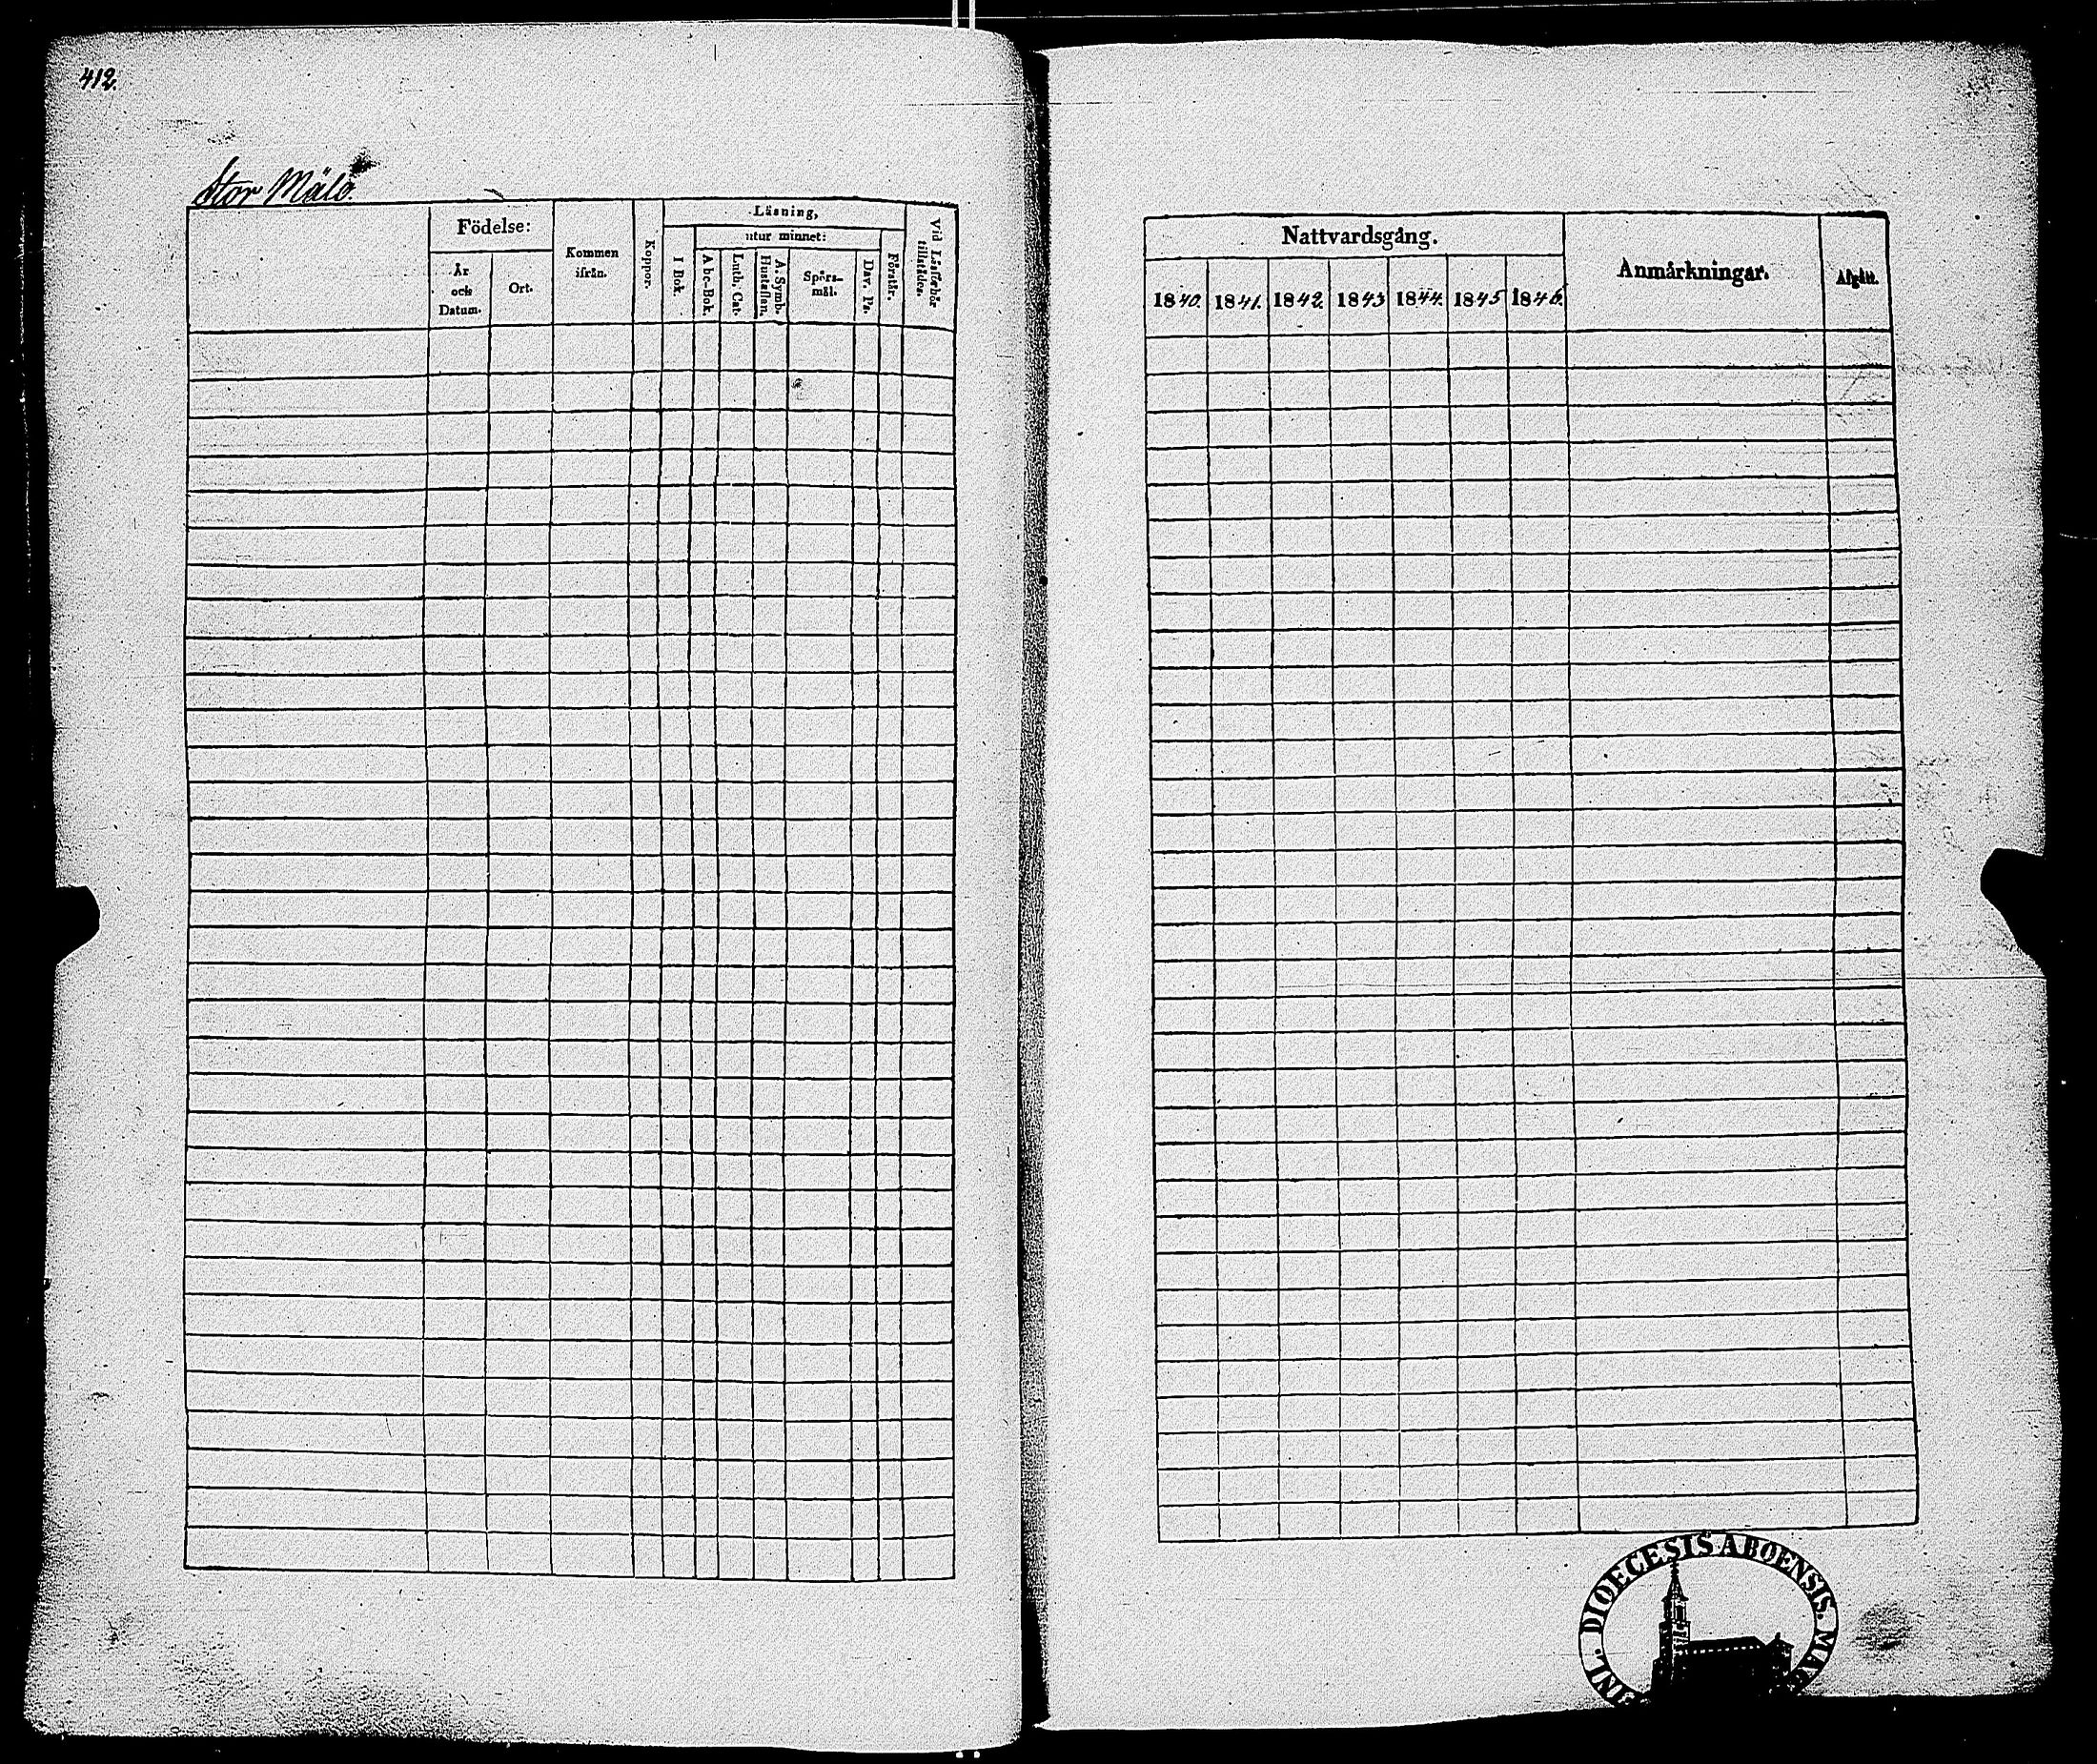 412.
Stor Mälö.
Födelse:
År
och
Datum.
Ort.
Kommen
ifrån.
Koppor.
Läsning,
I Bok.
utur minnet:
Abc-Bok.
Luth. Cat.
A. Symb.
Hustaflan.
Spörs-
mål.
Dav. Ps.
Förstår.
Vid Läsförhör
tillstädes.
Nattvardsgång.
1840. 1841. 1842. 1843 1844. 1845 1846.
Anmärkningar.
Afgått.
DIOECESIS ABOENSIS.